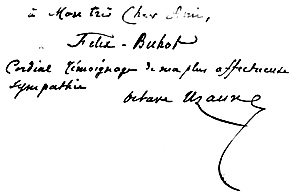 à Mon très Cher Ami,
Felix-Buhot
Cordial témoignage de ma plus affectueuse
sympathie
Octave Uzanne